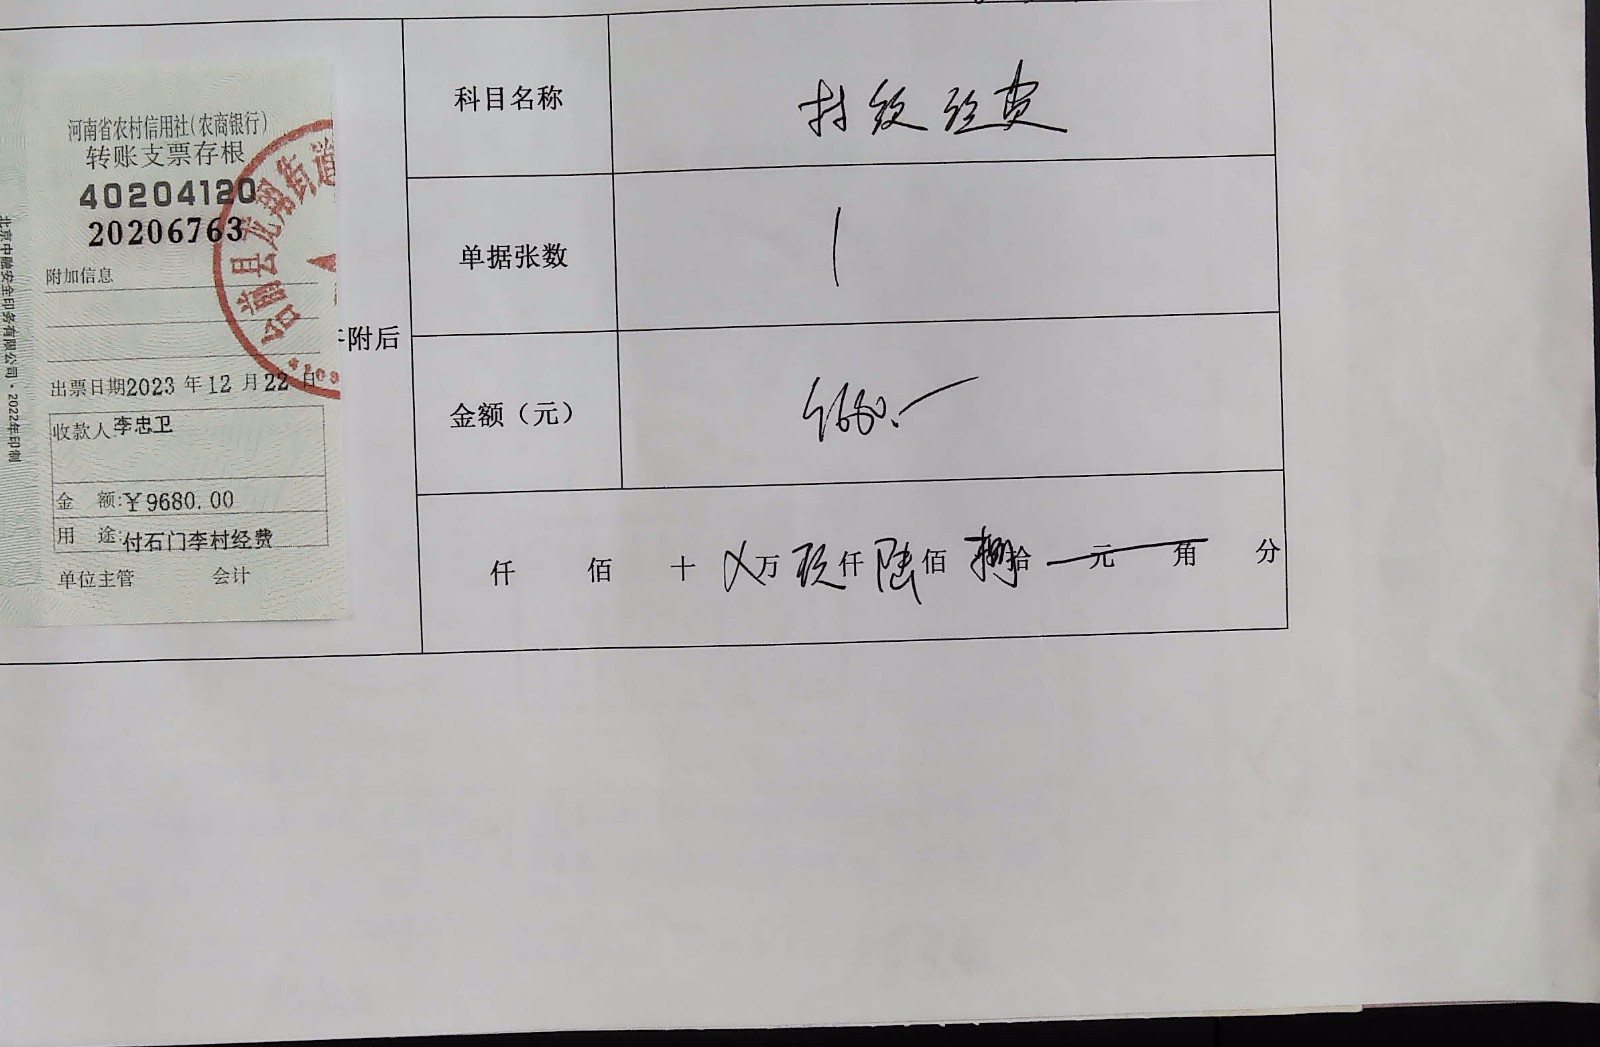 河南省农村信用社(农商银行)
转账支票存根
40204120
20206763
附加信息
出票日期2023 年 12 月 22 日
收款人:李忠卫
金 额:¥9680.00
用 途:付石门李村经费
单位主管 会计
北京中融安全印务有限公司·2022年印制
台前县龙翔街道
附后
科目名称 村级经费
单据张数 1
金额（元） 9680.-
仟 佰 十 乂万 玖仟 陆佰 捌拾 元 角 分